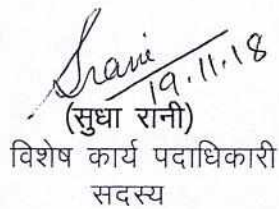 Srani
19.11.18
(सुधा रानी)
विशेष कार्य पदाधिकारी
सदस्य